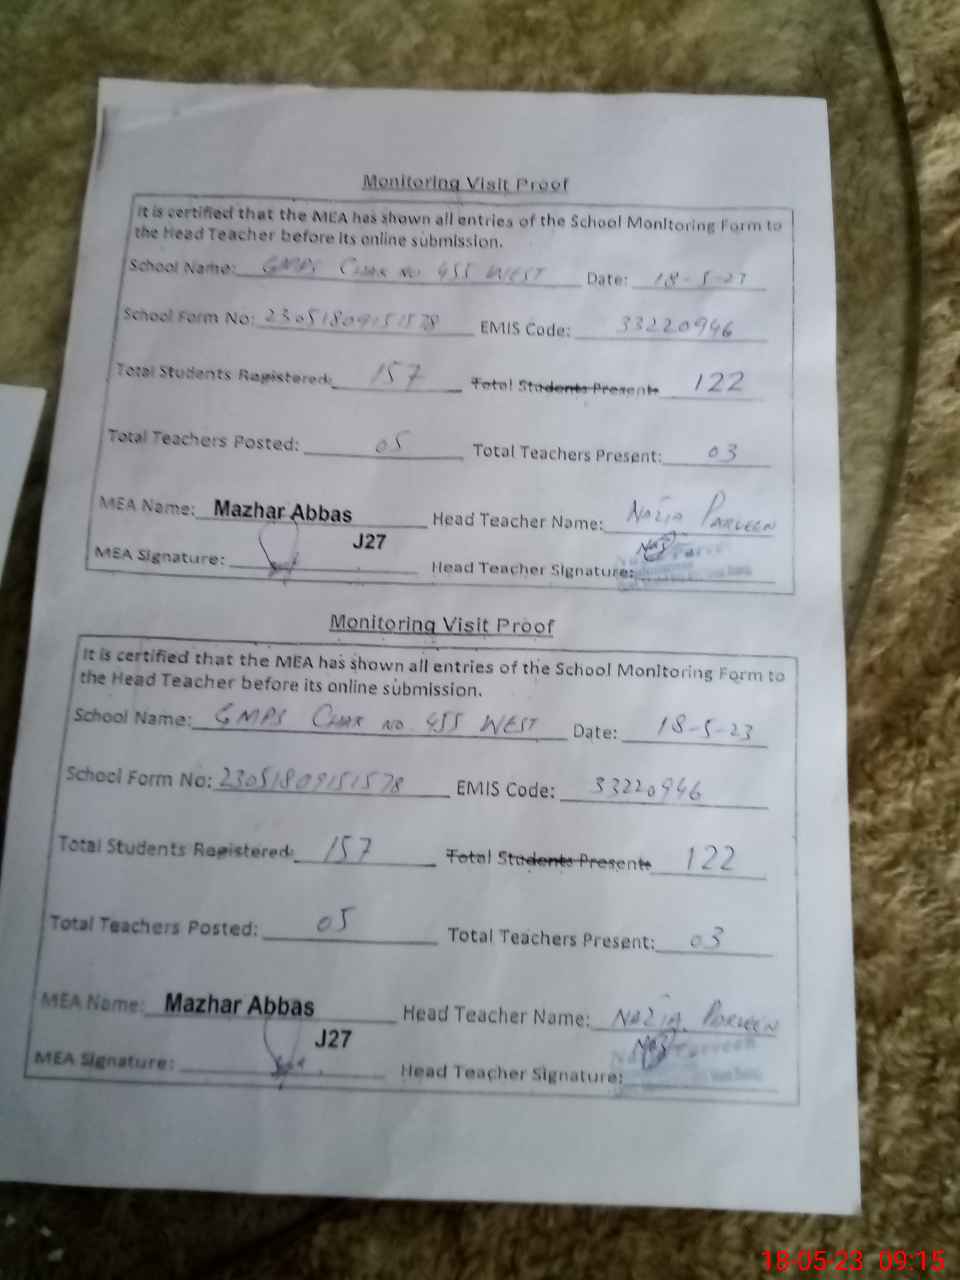 Monitoring Visit Proof
It is certified that the MEA has shown all entries of the School Monitoring Form to
the Head Teacher before its online submission.
School Name: GMPS Chak No 455 WEST Date: 18-5-23
School Form No: 23051809151578 EMIS Code: 33220946
Total Students Registered: 157 Total Students Present: 122
Total Teachers Posted: 05 Total Teachers Present: 03
MEA Name: Mazhar Abbas Head Teacher Name: Nazia Parveen
J27
MEA Signature: Head Teacher Signature:
Monitoring Visit Proof
It is certified that the MEA has shown all entries of the School Monitoring Form to
the Head Teacher before its online submission.
School Name: GMPS Chak No. 455 WEST Date: 18-5-23
School Form No: 23051809151578 EMIS Code: 33220946
Total Students Registered: 157 Total Students Present: 122
Total Teachers Posted: 05 Total Teachers Present: 03
MEA Name: Mazhar Abbas Head Teacher Name: Nazia Parveen
J27
MEA Signature: Head Teacher Signature:
18-05-23 09:15